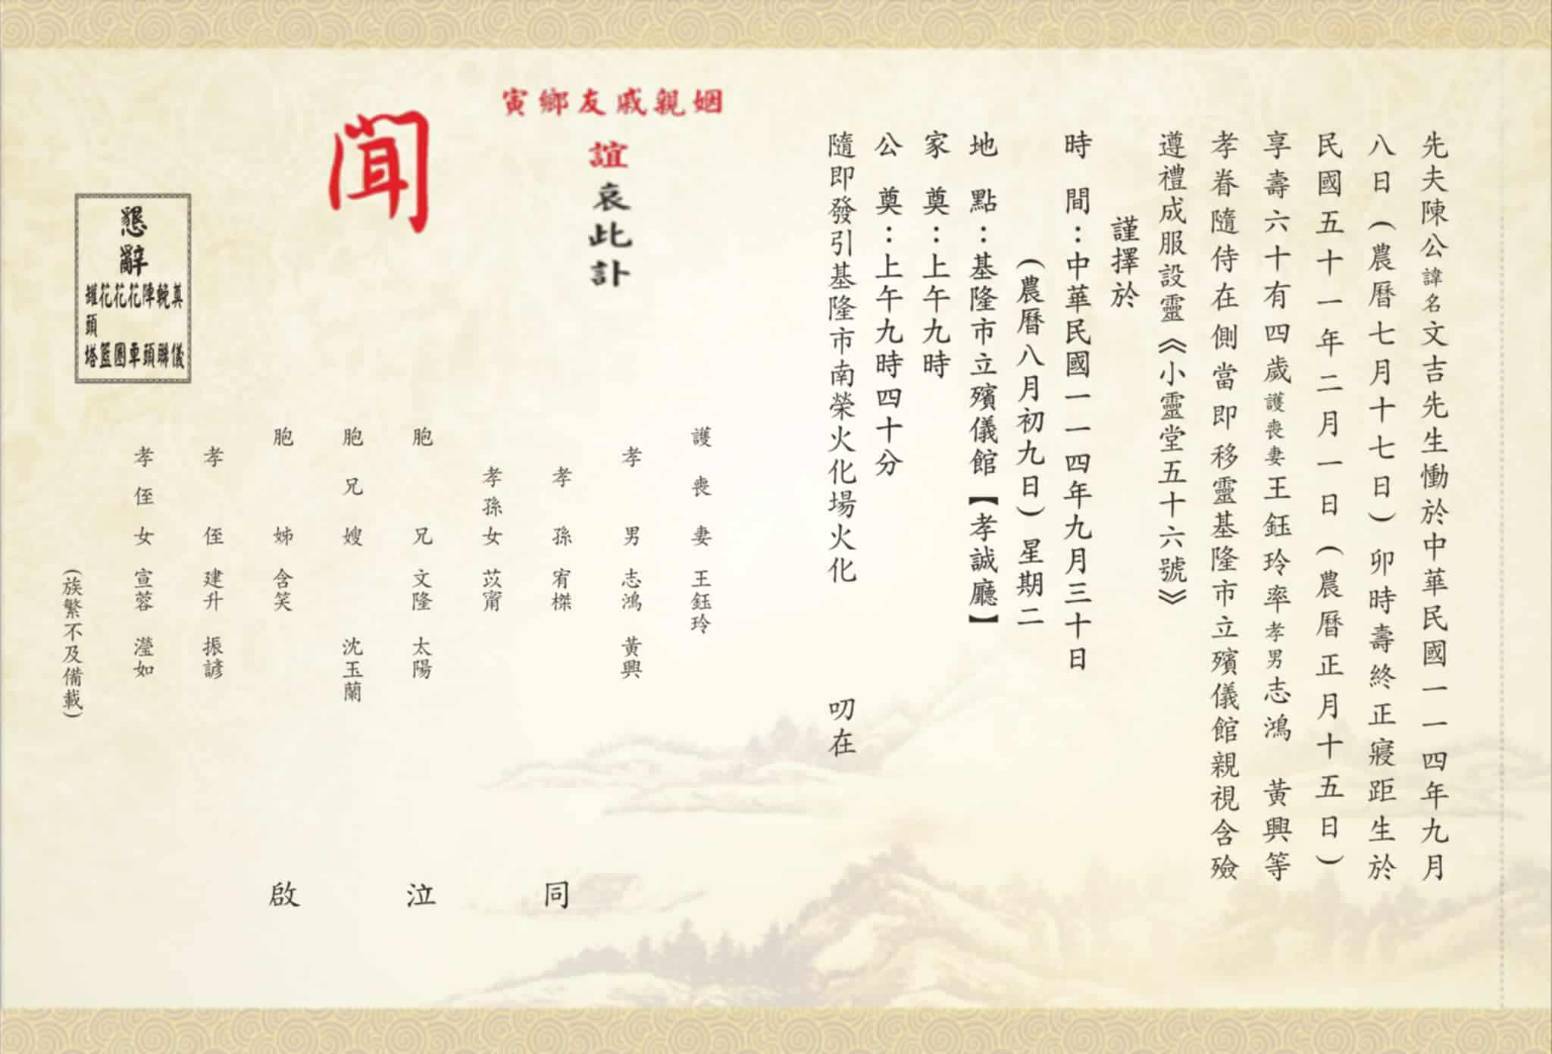 先夫陳公諱名文吉先生慟於中華民國一一四年九月
八日(農曆七月十七日)卯時壽終正寢距生於
民國五十一年二月一日(農曆正月十五日)
享壽六十有四歲護喪妻王鈺玲率孝男志鴻 黃興等
孝眷隨侍在側當即移靈基隆市立殯儀館親視含殮
遵禮成服設靈《小靈堂五十六號》
謹擇於
時 間:中華民國一一四年九月三十日
(農曆八月初九日)星期二
地 點:基隆市立殯儀館【孝誠廳】
家 奠:上午九時
公 奠:上午九時四十分
隨即發引基隆市南榮火化場火化 叨在
姻親戚友鄉寅
誼哀此訃
聞
護喪妻 王鈺玲
孝男 志鴻 黃興
孝孫 宥榤
孝孫女 苡甯
胞兄 文隆 太陽
胞兄嫂 沈玉蘭
胞姊 含笑
孝侄 建升 振諺
孝侄女 宣蓉 瀅如
(族繁不及備載)
同泣啟
懇辭
奠儀
輓聯
陣頭
花車
花圈
花籃
罐頭塔